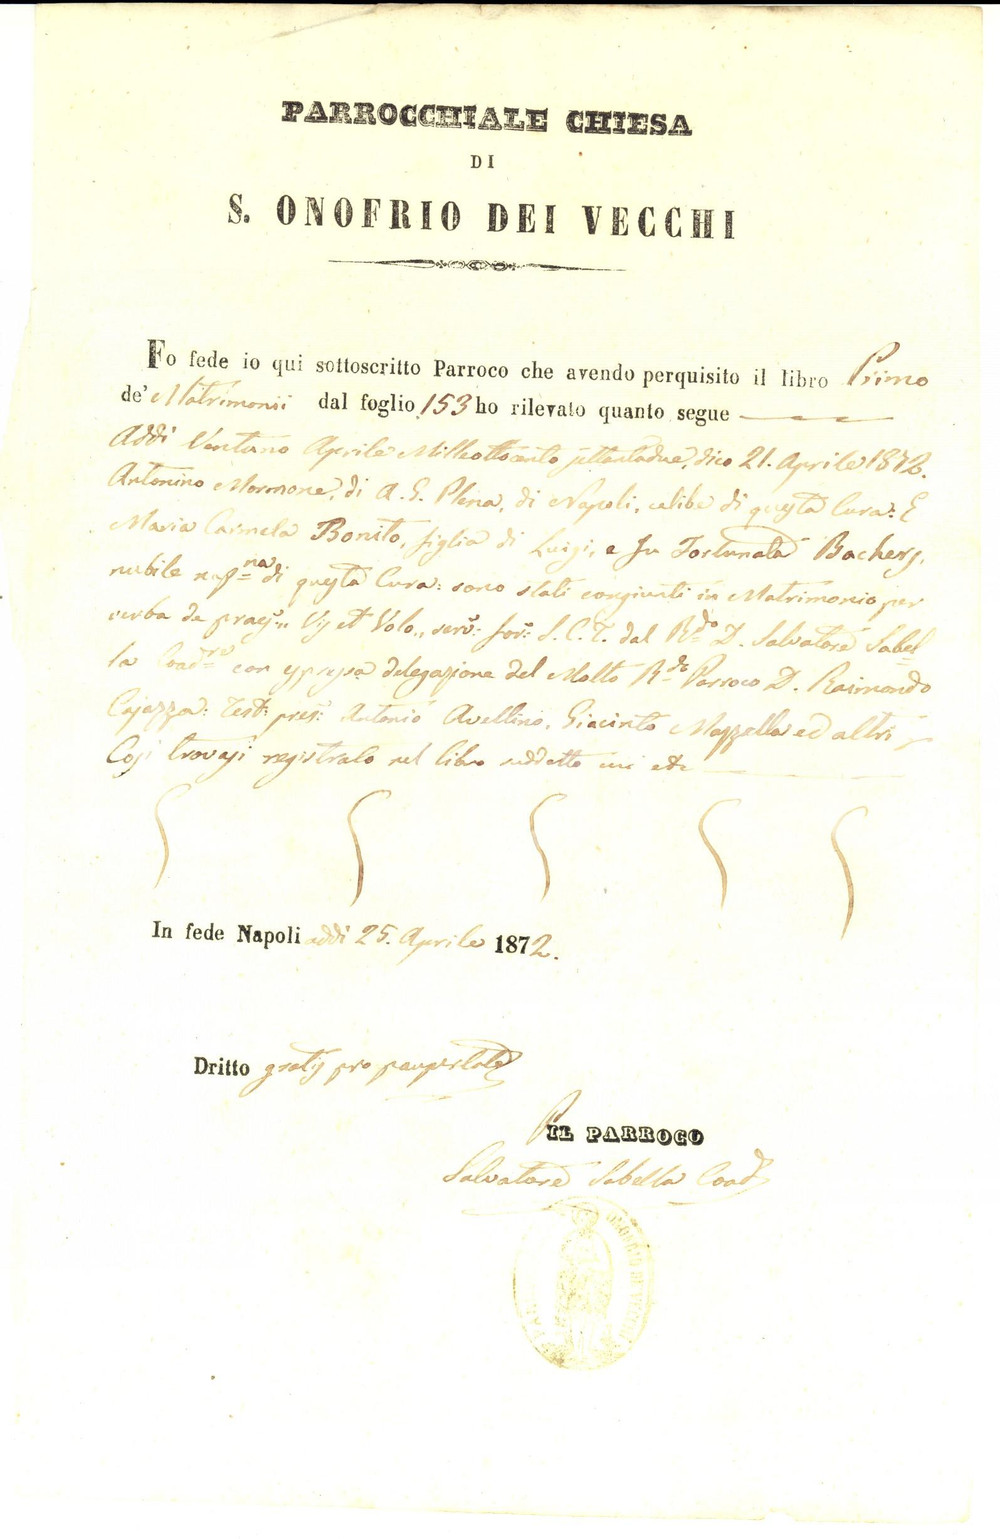 PARROCCHIALE CHIESA
DI
S. ONOFRIO DEI VECCHI
Fo fede io qui sottoscritto Parroco che avendo perquisito il libro Primo
de' Matrimonii dal foglio 153 ho rilevato quanto segue
Addì Ventuno Aprile Milleottocento settantadue, dico 21. Aprile 1872.
Antonino Mormone, di A. G. P. lena, di Napoli, celibe di questa Cura: E
Maria Carmela Bonito, figlia di Luigi, e fu Fortunata Bachers,
nubile nap:na di questa Cura: sono stati congiunti in Matrimonio per
verba de praes:ti Vis et Volo, serv: for: S. C. T. dal R:do D. Salvatore Sabel-
la Coad:re con espressa delegazione del Molto R:do Parroco D. Raimondo
Cajazza: Test: pres: Antonio Avellino, Giacinto Mazzella ed altri
Così trovasi registrato nel libro suddetto cui etc
In fede Napoli addì 25. Aprile 1872.
Dritto gratis pro paupertate
IL PARROCO
Salvatore Sabella Coad
ONOFRIO DEI VECCHI